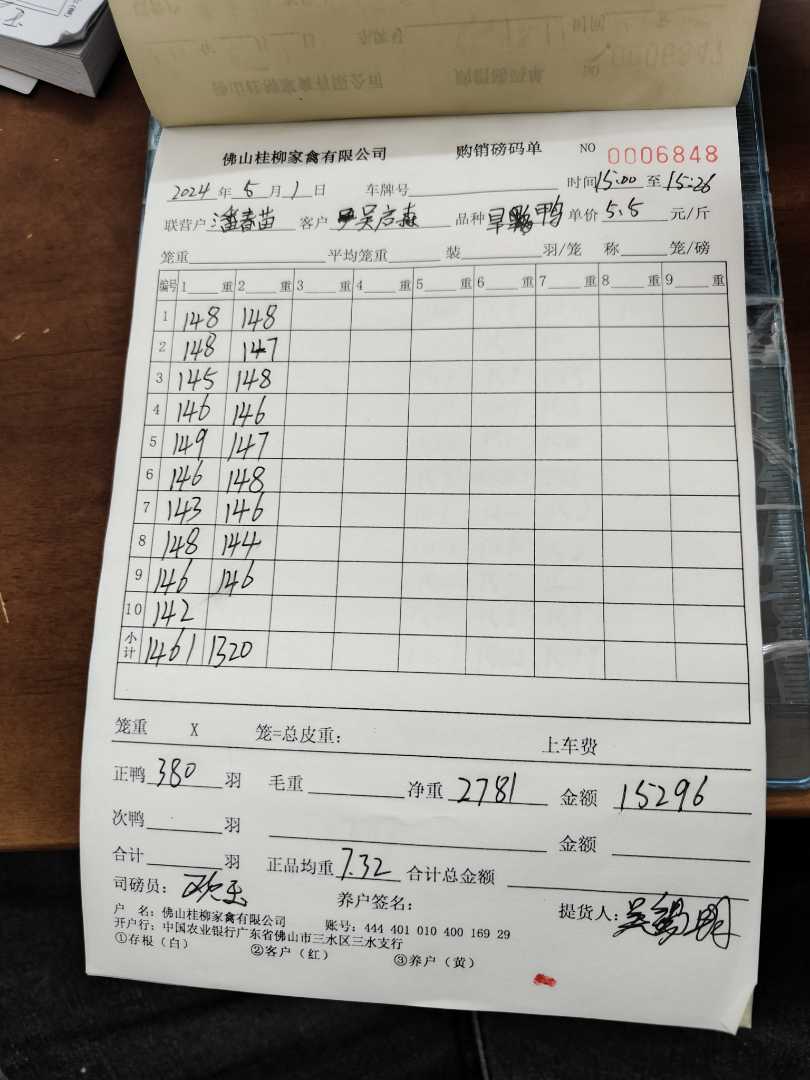 佛山桂柳家禽有限公司 购销磅码单 NO 0006848
2024年5月1日 车牌号 时间15:00至15:26
联营户潘春苗 客户吴启森 品种旱鸭 单价5.5元/斤
笼重 平均笼重 装 羽/笼 称 笼/磅
编号 1 重 2 重 3 重 4 重 5 重 6 重 7 重 8 重 9 重
1 148 148
2 148 147
3 145 148
4 146 146
5 149 147
6 146 148
7 143 146
8 148 144
9 146 146
10 142
小计 1461 1320
笼重 X 笼=总皮重： 上车费
正鸭380羽 毛重 净重2781 金额15296
次鸭 羽 金额
合计 羽 正品均重7.32 合计总金额
司磅员： 养户签名： 提货人：吴锡明
户 名：佛山桂柳家禽有限公司 账号：444 401 010 400 169 29
开户行：中国农业银行广东省佛山市三水区三水支行
①存根（白） ②客户（红） ③养户（黄）